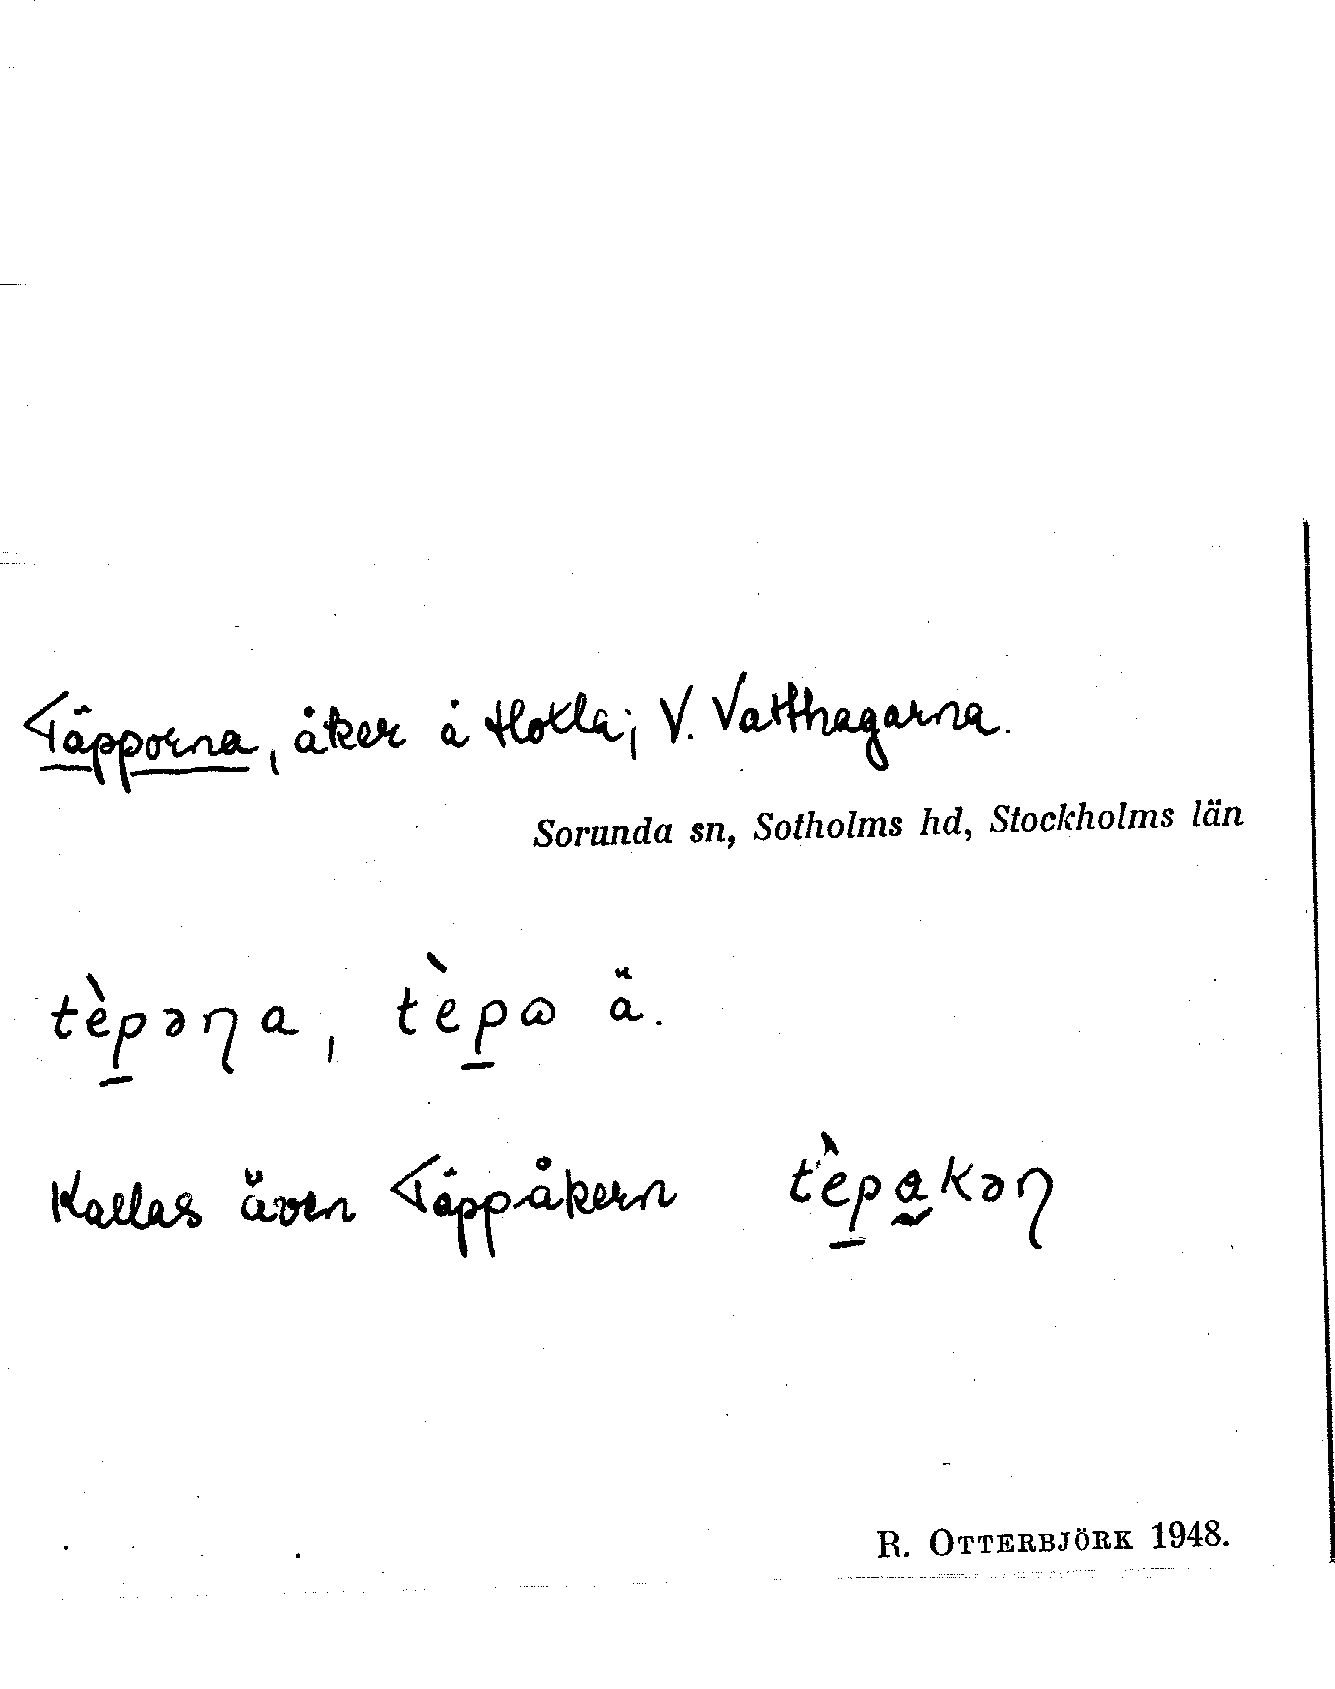 Täpporna, åker å Hoxla; V. Vatthagarna.
Sorunda sn, Sotholms hd, Stockholms län
tèpəɳa, tèpɷ ä.
Kallas även Täppåkern tèpakəɳ
R. OTTERBJÖRK 1948.